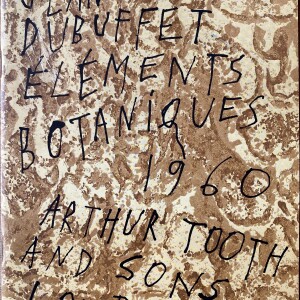 DUBUFFET
ÉLÉMENTS
BOTANIQUES
1960
ARTHUR TOOTH
AND SONS